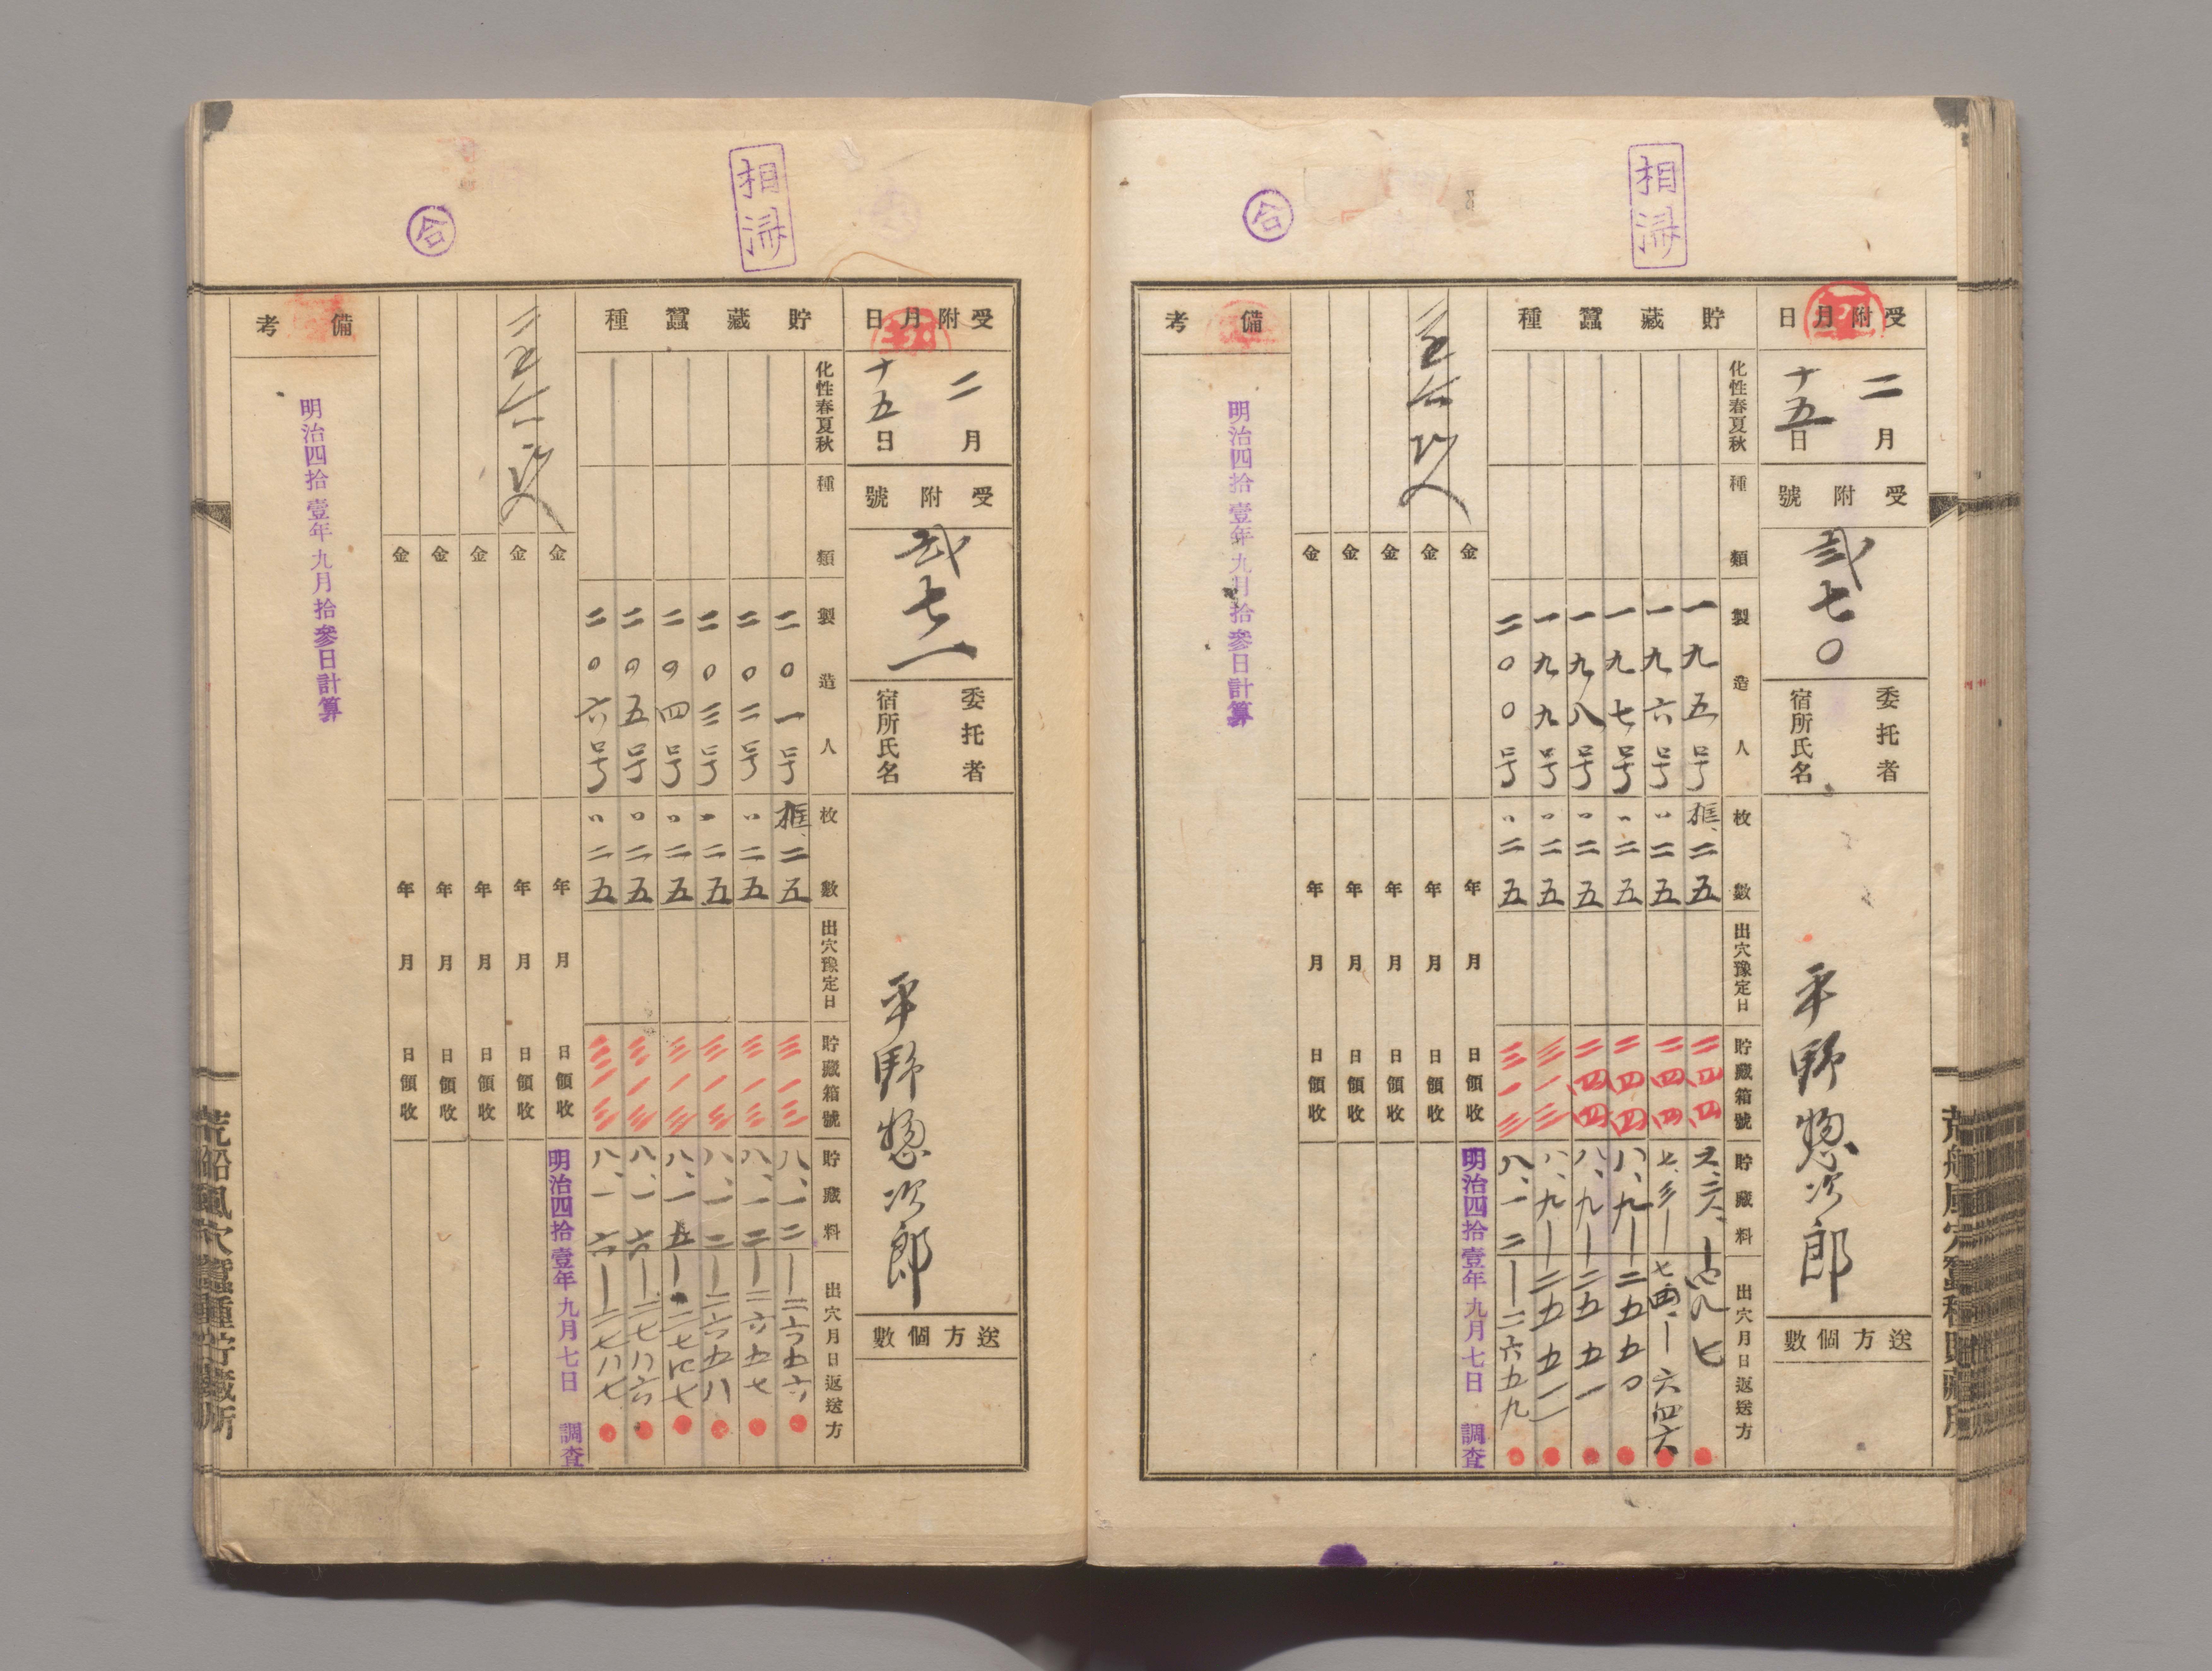 相済
合
受附月日
二月
十五日
受附號
弐七〇
委托者
宿所氏名
平野惣次郎
送方個數
貯藏蠶種
化性春夏秋
種類
製造人
枚數
出穴豫定日
貯藏箱號
貯藏料
出穴月日返送方
一九五号 框、二五 二四四
一九六号 〃二五 二四四 七、三一 七四、一 六四六
一九七号 〃二五 二四四 八、九 一 二五五〇
一九八号 〃二五 二四四 八、九 一 二五五一
一九九号 〃二五 三一三 八、九 一 二五五二
二〇〇号 〃二五 三一三 八、一二 一 二六五九
明治四拾壹年九月七日 調査
金 年 月 日領收
金 年 月 日領收
金 年 月 日領收
金 年 月 日領收
金 年 月 日領收
備考
明治四拾壹年九月拾參日計算
荒船風穴蠶種貯藏所
相済
合
受附月日
二月
十五日
受附號
弐七一
委托者
宿所氏名
平野惣次郎
送方個數
貯藏蠶種
化性春夏秋
種類
製造人
枚數
出穴豫定日
貯藏箱號
貯藏料
出穴月日返送方
二〇一号 框、二五 三一三 八、一二 一 二六五六
二〇二号 〃二五 三一三 八、一二 一 二六五七
二〇三号 〃二五 三一三 八、一二 一 二六五八
二〇四号 〃二五 三一三 八、一五 一
二〇五号 〃二五 三一三 八、一六 一 二七八六
二〇六号 〃二五 三一三 八、一六 一 二七八七
明治四拾壹年九月七日 調査
金 年 月 日領收
金 年 月 日領收
金 年 月 日領收
金 年 月 日領收
金 年 月 日領收
備考
明治四拾壹年九月拾參日計算
荒船風穴蠶種貯藏所